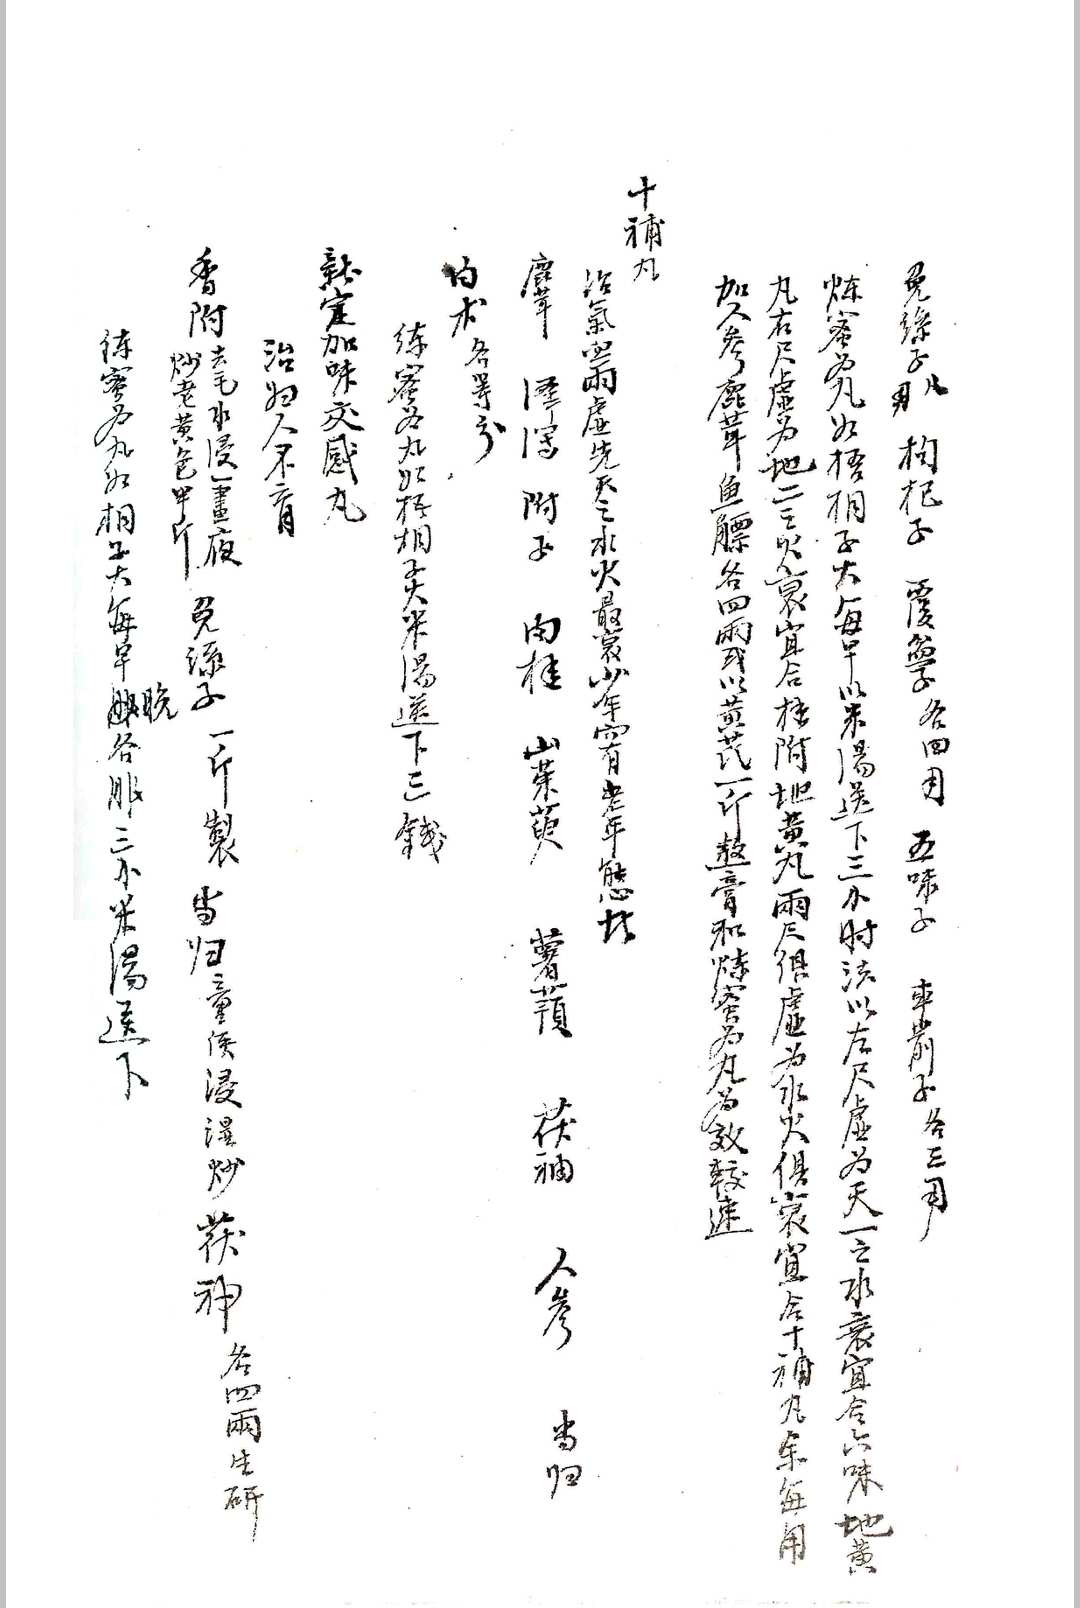 兔絲子八用 枸杞子 覆盆子各四用 五味子 車前子各三用
炼蜜为丸如梧相子大每早以米湯送下三小时法以左尺虛为天一之水衰宜合六味地黄
丸右尺虛为地二之火衰宜合桂附地黄丸兩尺俱虛为水火俱衰宜合十補丸余每用
加人参鹿茸鱼鰾各四兩或以黄芪一斤熬膏和炼蜜为丸为效較速
十補丸
治氣血兩虛先天之水火最衰少年而有老年態者
鹿茸 澤瀉 附子 肉桂 山茱萸 薯蕷 茯神 人参 当归
白术各等分
炼蜜为丸如梧相子大米湯送下三錢
新定加味交感丸
治妇人不育
香附去毛水浸一晝夜炒老黄色半斤 兔絲子一斤製 当归童便浸湿炒 茯神各四兩生研
炼蜜为丸如相子大每早晚各服三小米湯送下